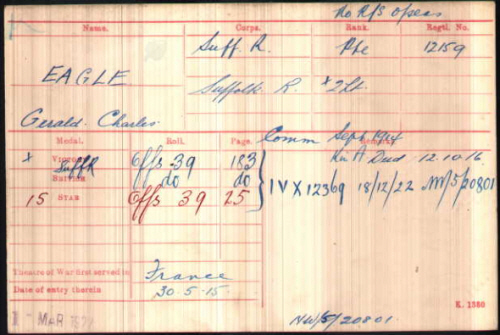 No R/S opens
Name. Corps. Rank. Regtl. No.
Suff. R. Pte 12159
EAGLE
Suffolk R. x 2/Lt.
Gerald Charles
Medal. Roll. Page. Comm Sept 1914
x Victory Offs 39 183 K in A Died 12.10.16
Suff R
British do do IVX 12369 18/12/22 NW/5/20801
15 Star Offs 39 25
Theatre of War first served in France
Date of entry therein 30.5.15.
K. 1380
MAR
NW/5/20801.